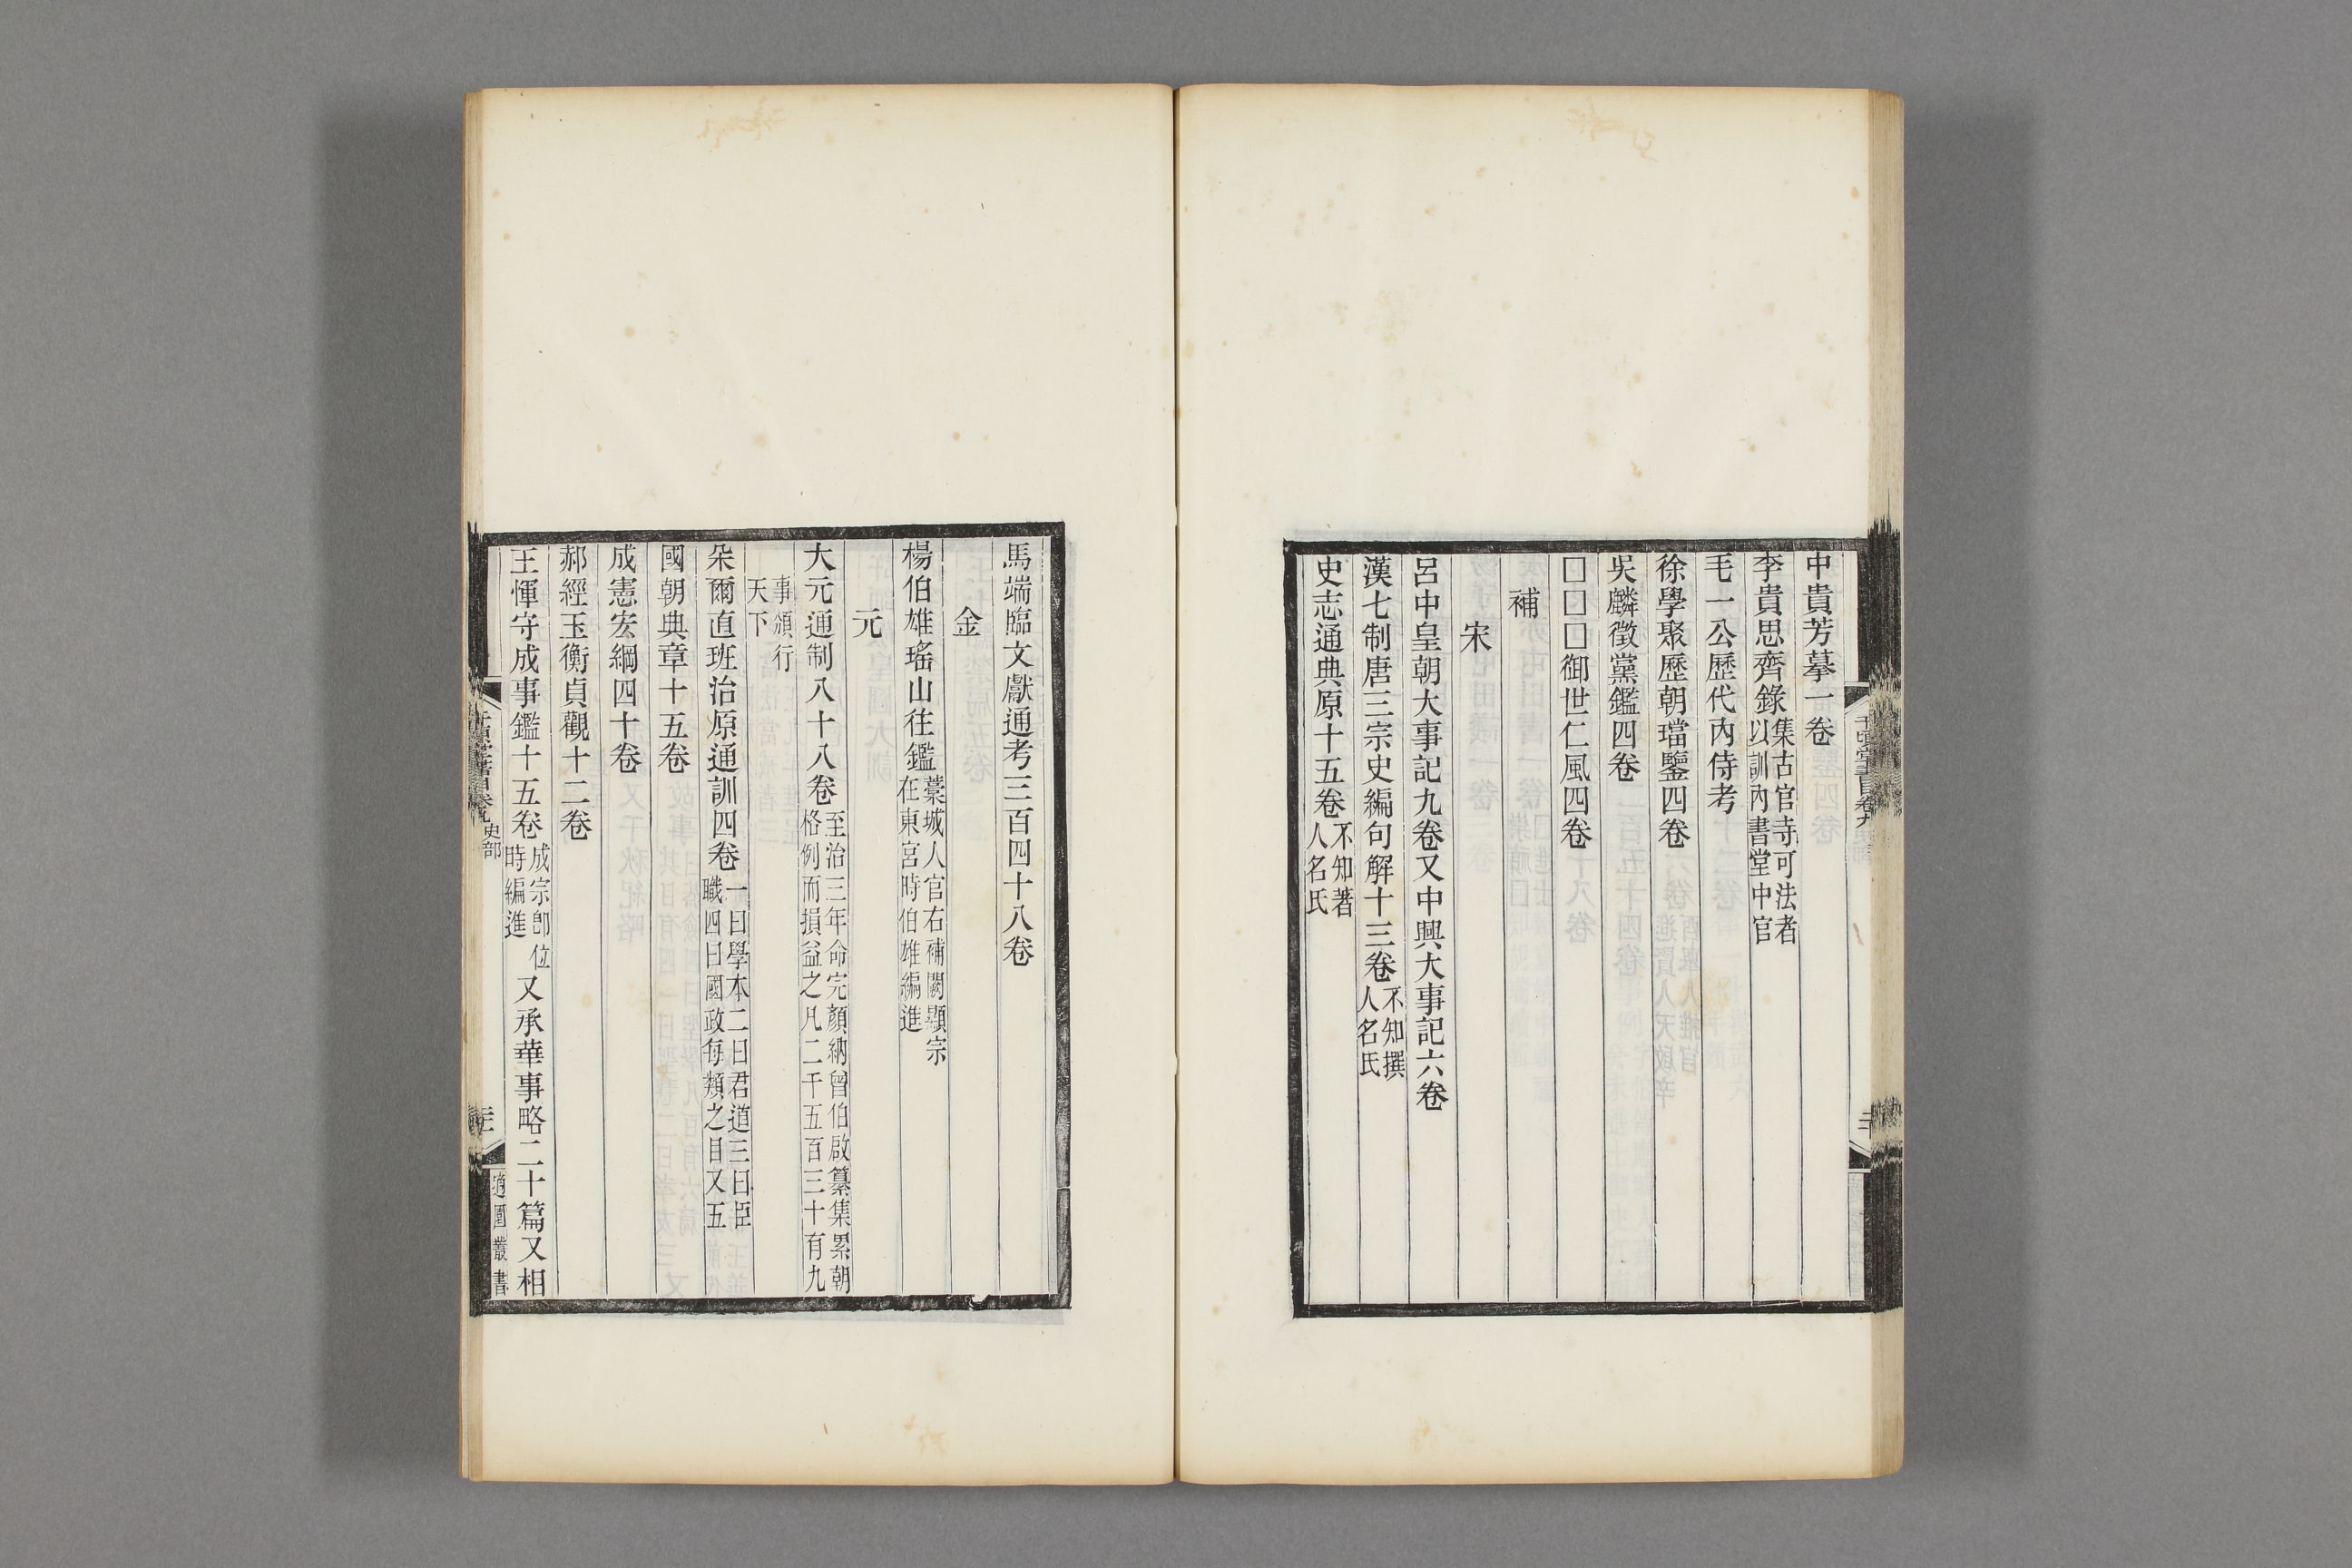 中貴芳摹一卷
李貴思齊錄集古官寺可法者
以訓內書堂中官
毛一公歷代內侍考
徐學聚歷朝璫鑒四卷
吳麟徵黨鑑四卷
□□□御世仁風四卷
補
宋
呂中皇朝大事記九卷又中興大事記六卷
漢七制唐三宗史編句解十三卷不知撰
人名氏
史志通典原十五卷不知著
人名氏
馬端臨文獻通考三百四十八卷
金
楊伯雄瑤山往鑑藁城人官右補闕顯宗
在東宮時伯雄編進
元
大元通制八十八卷至治三年命完顏納曾伯啟纂集累朝
格例而損益之凡二千五百三十有九
事頒行
天下
朵爾直班治原通訓四卷一曰學本二曰君道三曰臣
職四曰國政每類之目又五
國朝典章十五卷
成憲宏綱四十卷
郝經玉衡貞觀十二卷
王惲守成事鑑十五卷成宗卽位
時編進
又承華事略二十篇又相
千頃堂書目卷九 史部
適園叢書